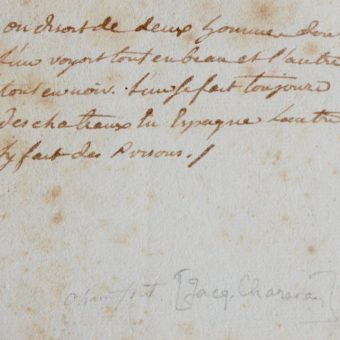 on disoit de deux hommes dont
l'un voyoit tout en beau et l'autre
tout en noir. L'un se fait toujours
des chateaux En Espagne Lautre
y fait des Prisons. /
chamfort. [Jacq.